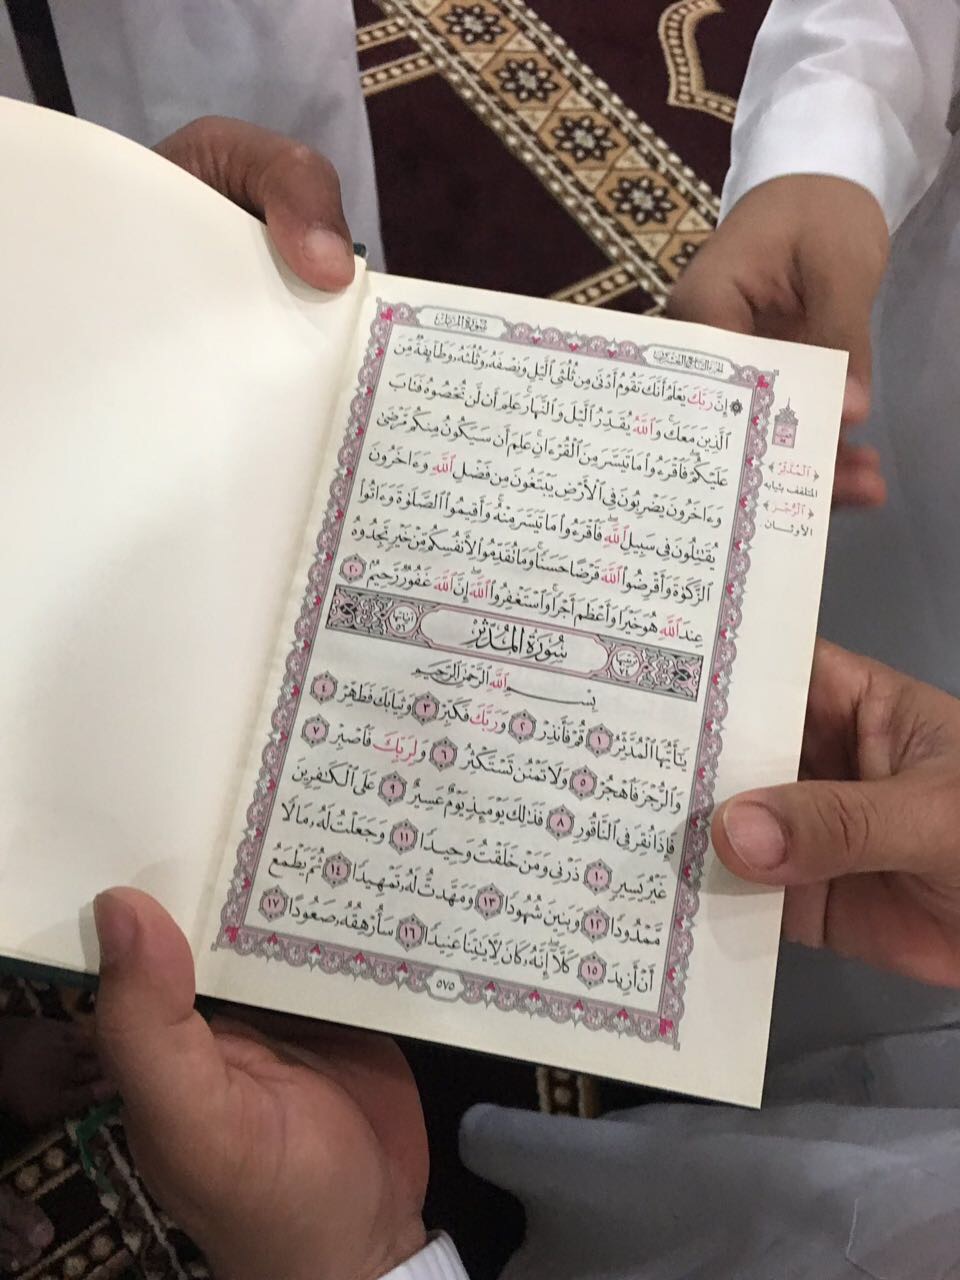 سورة المزمل
الجزء التاسع والعشرون
۞ إِنَّ رَبَّكَ يَعْلَمُ أَنَّكَ تَقُومُ أَدْنَىٰ مِن ثُلُثَىِ ٱلَّيْلِ وَنِصْفَهُۥ وَثُلُثَهُۥ وَطَآئِفَةٌ مِّنَ
ٱلَّذِينَ مَعَكَ ۚ وَٱللَّهُ يُقَدِّرُ ٱلَّيْلَ وَٱلنَّهَارَ ۚ عَلِمَ أَن لَّن تُحْصُوهُ فَتَابَ
عَلَيْكُمْ ۖ فَٱقْرَءُوا۟ مَا تَيَسَّرَ مِنَ ٱلْقُرْءَانِ ۚ عَلِمَ أَن سَيَكُونُ مِنكُم مَّرْضَىٰ
وَءَاخَرُونَ يَضْرِبُونَ فِى ٱلْأَرْضِ يَبْتَغُونَ مِن فَضْلِ ٱللَّهِ ۙ وَءَاخَرُونَ
يُقَـٰتِلُونَ فِى سَبِيلِ ٱللَّهِ ۖ فَٱقْرَءُوا۟ مَا تَيَسَّرَ مِنْهُ ۚ وَأَقِيمُوا۟ ٱلصَّلَوٰةَ وَءَاتُوا۟
ٱلزَّكَوٰةَ وَأَقْرِضُوا۟ ٱللَّهَ قَرْضًا حَسَنًا ۚ وَمَا تُقَدِّمُوا۟ لِأَنفُسِكُم مِّنْ خَيْرٍ تَجِدُوهُ
عِندَ ٱللَّهِ هُوَ خَيْرًا وَأَعْظَمَ أَجْرًا ۚ وَٱسْتَغْفِرُوا۟ ٱللَّهَ ۖ إِنَّ ٱللَّهَ غَفُورٌ رَّحِيمٌۢ ٢٠
سُورَةُ المُدَّثِّر
آياتها ٥٦
بِسْمِ ٱللَّهِ ٱلرَّحْمَـٰنِ ٱلرَّحِيمِ
يَـٰٓأَيُّهَا ٱلْمُدَّثِّرُ ١ قُمْ فَأَنذِرْ ٢ وَرَبَّكَ فَكَبِّرْ ٣ وَثِيَابَكَ فَطَهِّرْ ٤
وَٱلرُّجْزَ فَٱهْجُرْ ٥ وَلَا تَمْنُن تَسْتَكْثِرُ ٦ وَلِرَبِّكَ فَٱصْبِرْ ٧
فَإِذَا نُقِرَ فِى ٱلنَّاقُورِ ٨ فَذَٰلِكَ يَوْمَئِذٍ يَوْمٌ عَسِيرٌ ٩ عَلَى ٱلْكَـٰفِرِينَ
غَيْرُ يَسِيرٍ ١٠ ذَرْنِى وَمَنْ خَلَقْتُ وَحِيدًا ١١ وَجَعَلْتُ لَهُۥ مَالًا
مَّمْدُودًا ١٢ وَبَنِينَ شُهُودًا ١٣ وَمَهَّدتُّ لَهُۥ تَمْهِيدًا ١٤ ثُمَّ يَطْمَعُ
أَنْ أَزِيدَ ١٥ كَلَّآ ۖ إِنَّهُۥ كَانَ لِـَٔايَـٰتِنَا عَنِيدًا ١٦ سَأُرْهِقُهُۥ صَعُودًا ١٧
٥٧٥
﴿ٱلْمُدَّثِّرُ﴾
المتلفف بثيابه
﴿ٱلرُّجْزَ﴾
الأوثان